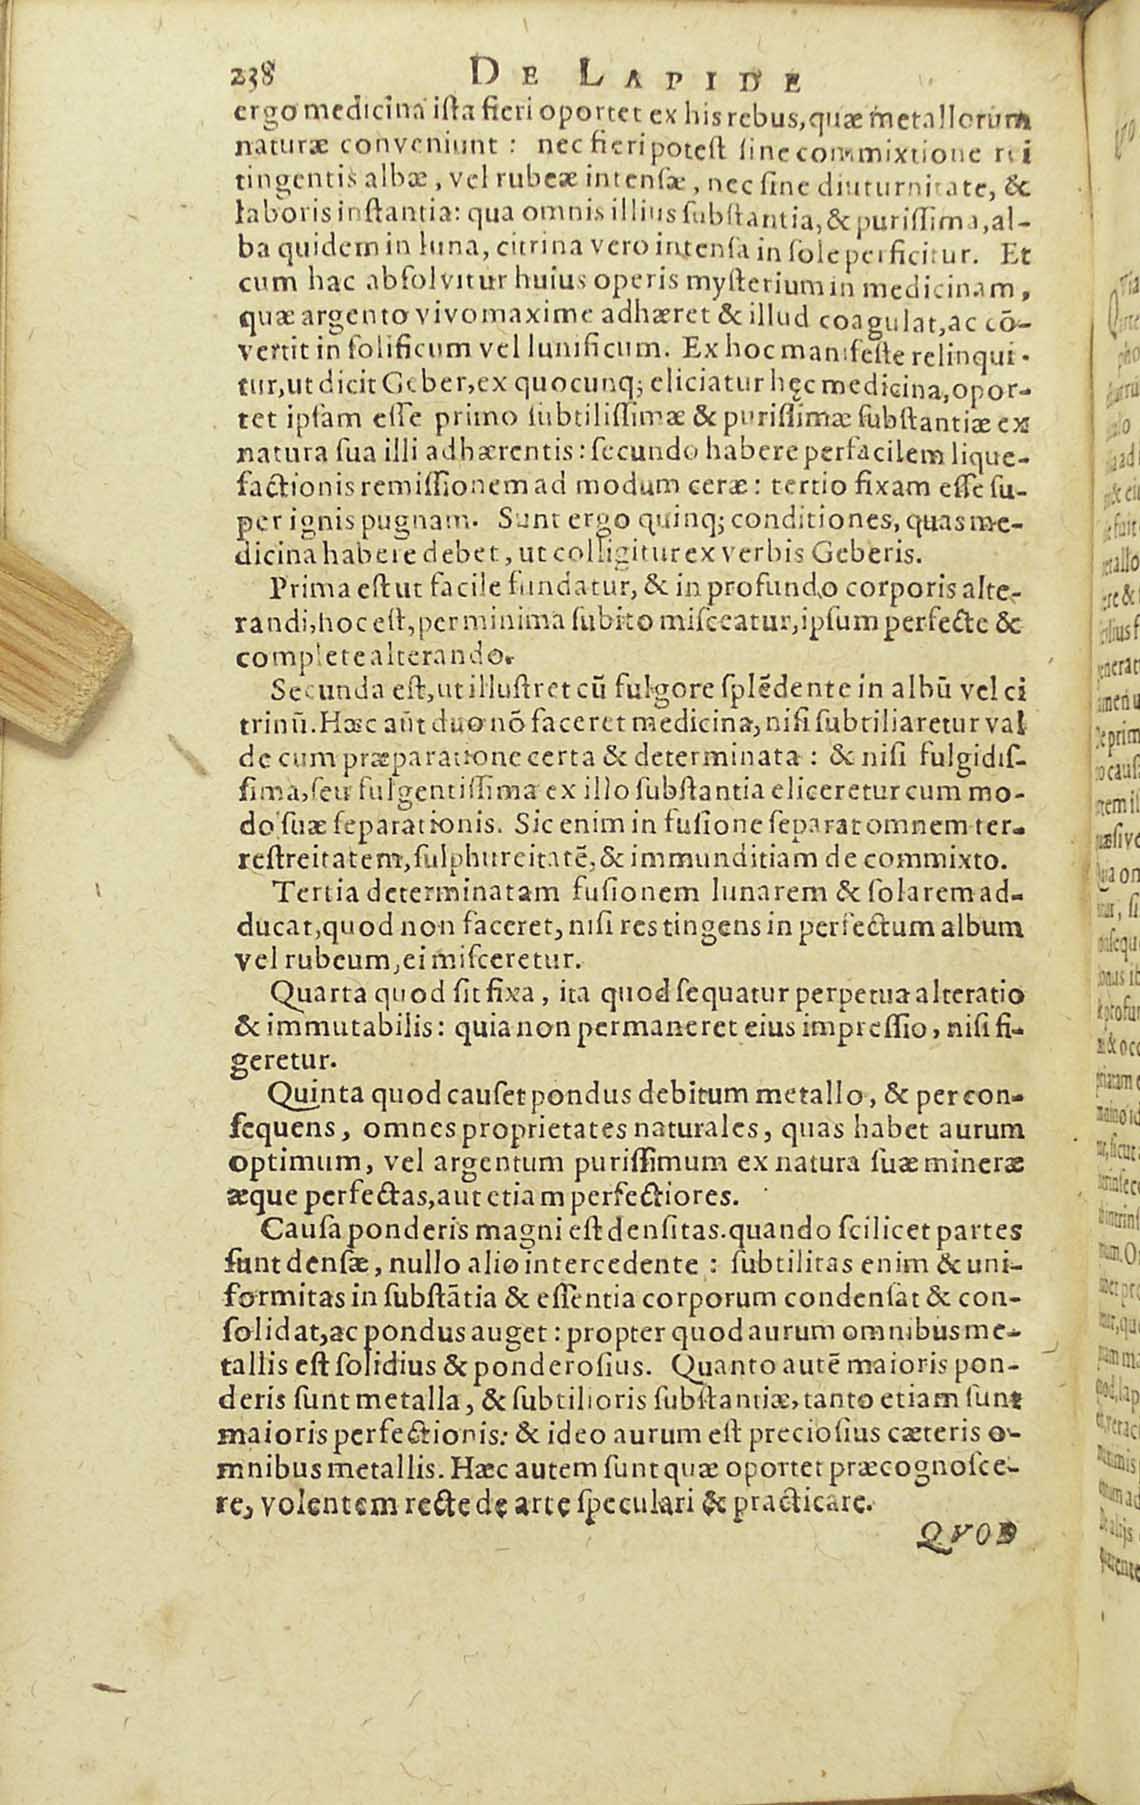 238 DE LAPIDE
ergo medicina ista fieri oportet ex his rebus, quæ metallorum
naturæ conveniunt: nec fieri potest sine commixtione rei
tingentis albæ, vel rubeæ intensæ, nec sine diuturnitate, &
laboris instantia: qua omnis illius substantia, & purissima, al-
ba quidem in luna, citrina vero intensa in sole perficitur. Et
cum hac absolvitur huius operis mysterium in medicinam,
quæ argento vivo maxime adhæret & illud coagulat, ac cō-
vertit in solificum vel lunificum. Ex hoc manifeste relinqui-
tur, ut dicit Geber, ex quocunq; eliciatur hęc medicina, opor-
tet ipsam esse primo subtilissimæ & purissimæ substantiæ ex
natura sua illi adhærentis: secundo habere perfacilem lique-
factionis remissionem ad modum ceræ: tertio fixam esse su-
per ignis pugnam. Sunt ergo quinq; conditiones, quas me-
dicina habere debet, ut colligitur ex verbis Geberis.
Prima est ut facile fundatur, & in profundo corporis alte-
randi, hoc est, per minima subito misceatur, ipsum perfecte &
complete alterando.
Secunda est, ut illustret cū fulgore splēdente in albū vel ci
trinū. Hæc aūt duo nō faceret medicina, nisi subtiliaretur val
de cum præparatione certa & determinata: & nisi fulgidis-
sima, seu fulgentissima ex illo substantia eliceretur cum mo-
do suæ separationis. Sic enim in fusione separat omnem ter-
restreitatem, sulphureitatē, & immunditiam de commixto.
Tertia determinatam fusionem lunarem & solarem ad-
ducat, quod non faceret, nisi res tingens in perfectum album
vel rubeum, ei misceretur.
Quarta quod sit fixa, ita quod sequatur perpetua alteratio
& immutabilis: quia non permaneret eius impressio, nisi fi-
geretur.
Quinta quod causet pondus debitum metallo, & per con-
sequens, omnes proprietates naturales, quas habet aurum
optimum, vel argentum purissimum ex natura suæ mineræ
æque perfectas, aut etiam perfectiores.
Causa ponderis magni est densitas. quando scilicet partes
sunt densæ, nullo alio intercedente: subtilitas enim & uni-
formitas in substātia & essentia corporum condensat & con-
solidat, ac pondus auget: propter quod aurum omnibus me-
tallis est solidius & ponderosius. Quanto autē maioris pon-
deris sunt metalla, & subtilioris substantiæ, tanto etiam sunt
maioris perfectionis: & ideo aurum est preciosius cæteris o-
mnibus metallis. Hæc autem sunt quæ oportet præcognosce-
re, volentem recte de arte speculari & practicare.
QVOD